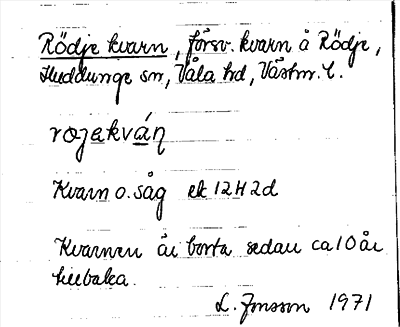 Rödje kvarn, försv. kvarn å Rödje,
Huddunge sn, Våla hd, Västm. l.
rojakváṇ
Kvarn o. såg ek 12H2d
Kvarnen är borta sedan ca 10 år
tillbaka.
L. Jonsson 1971